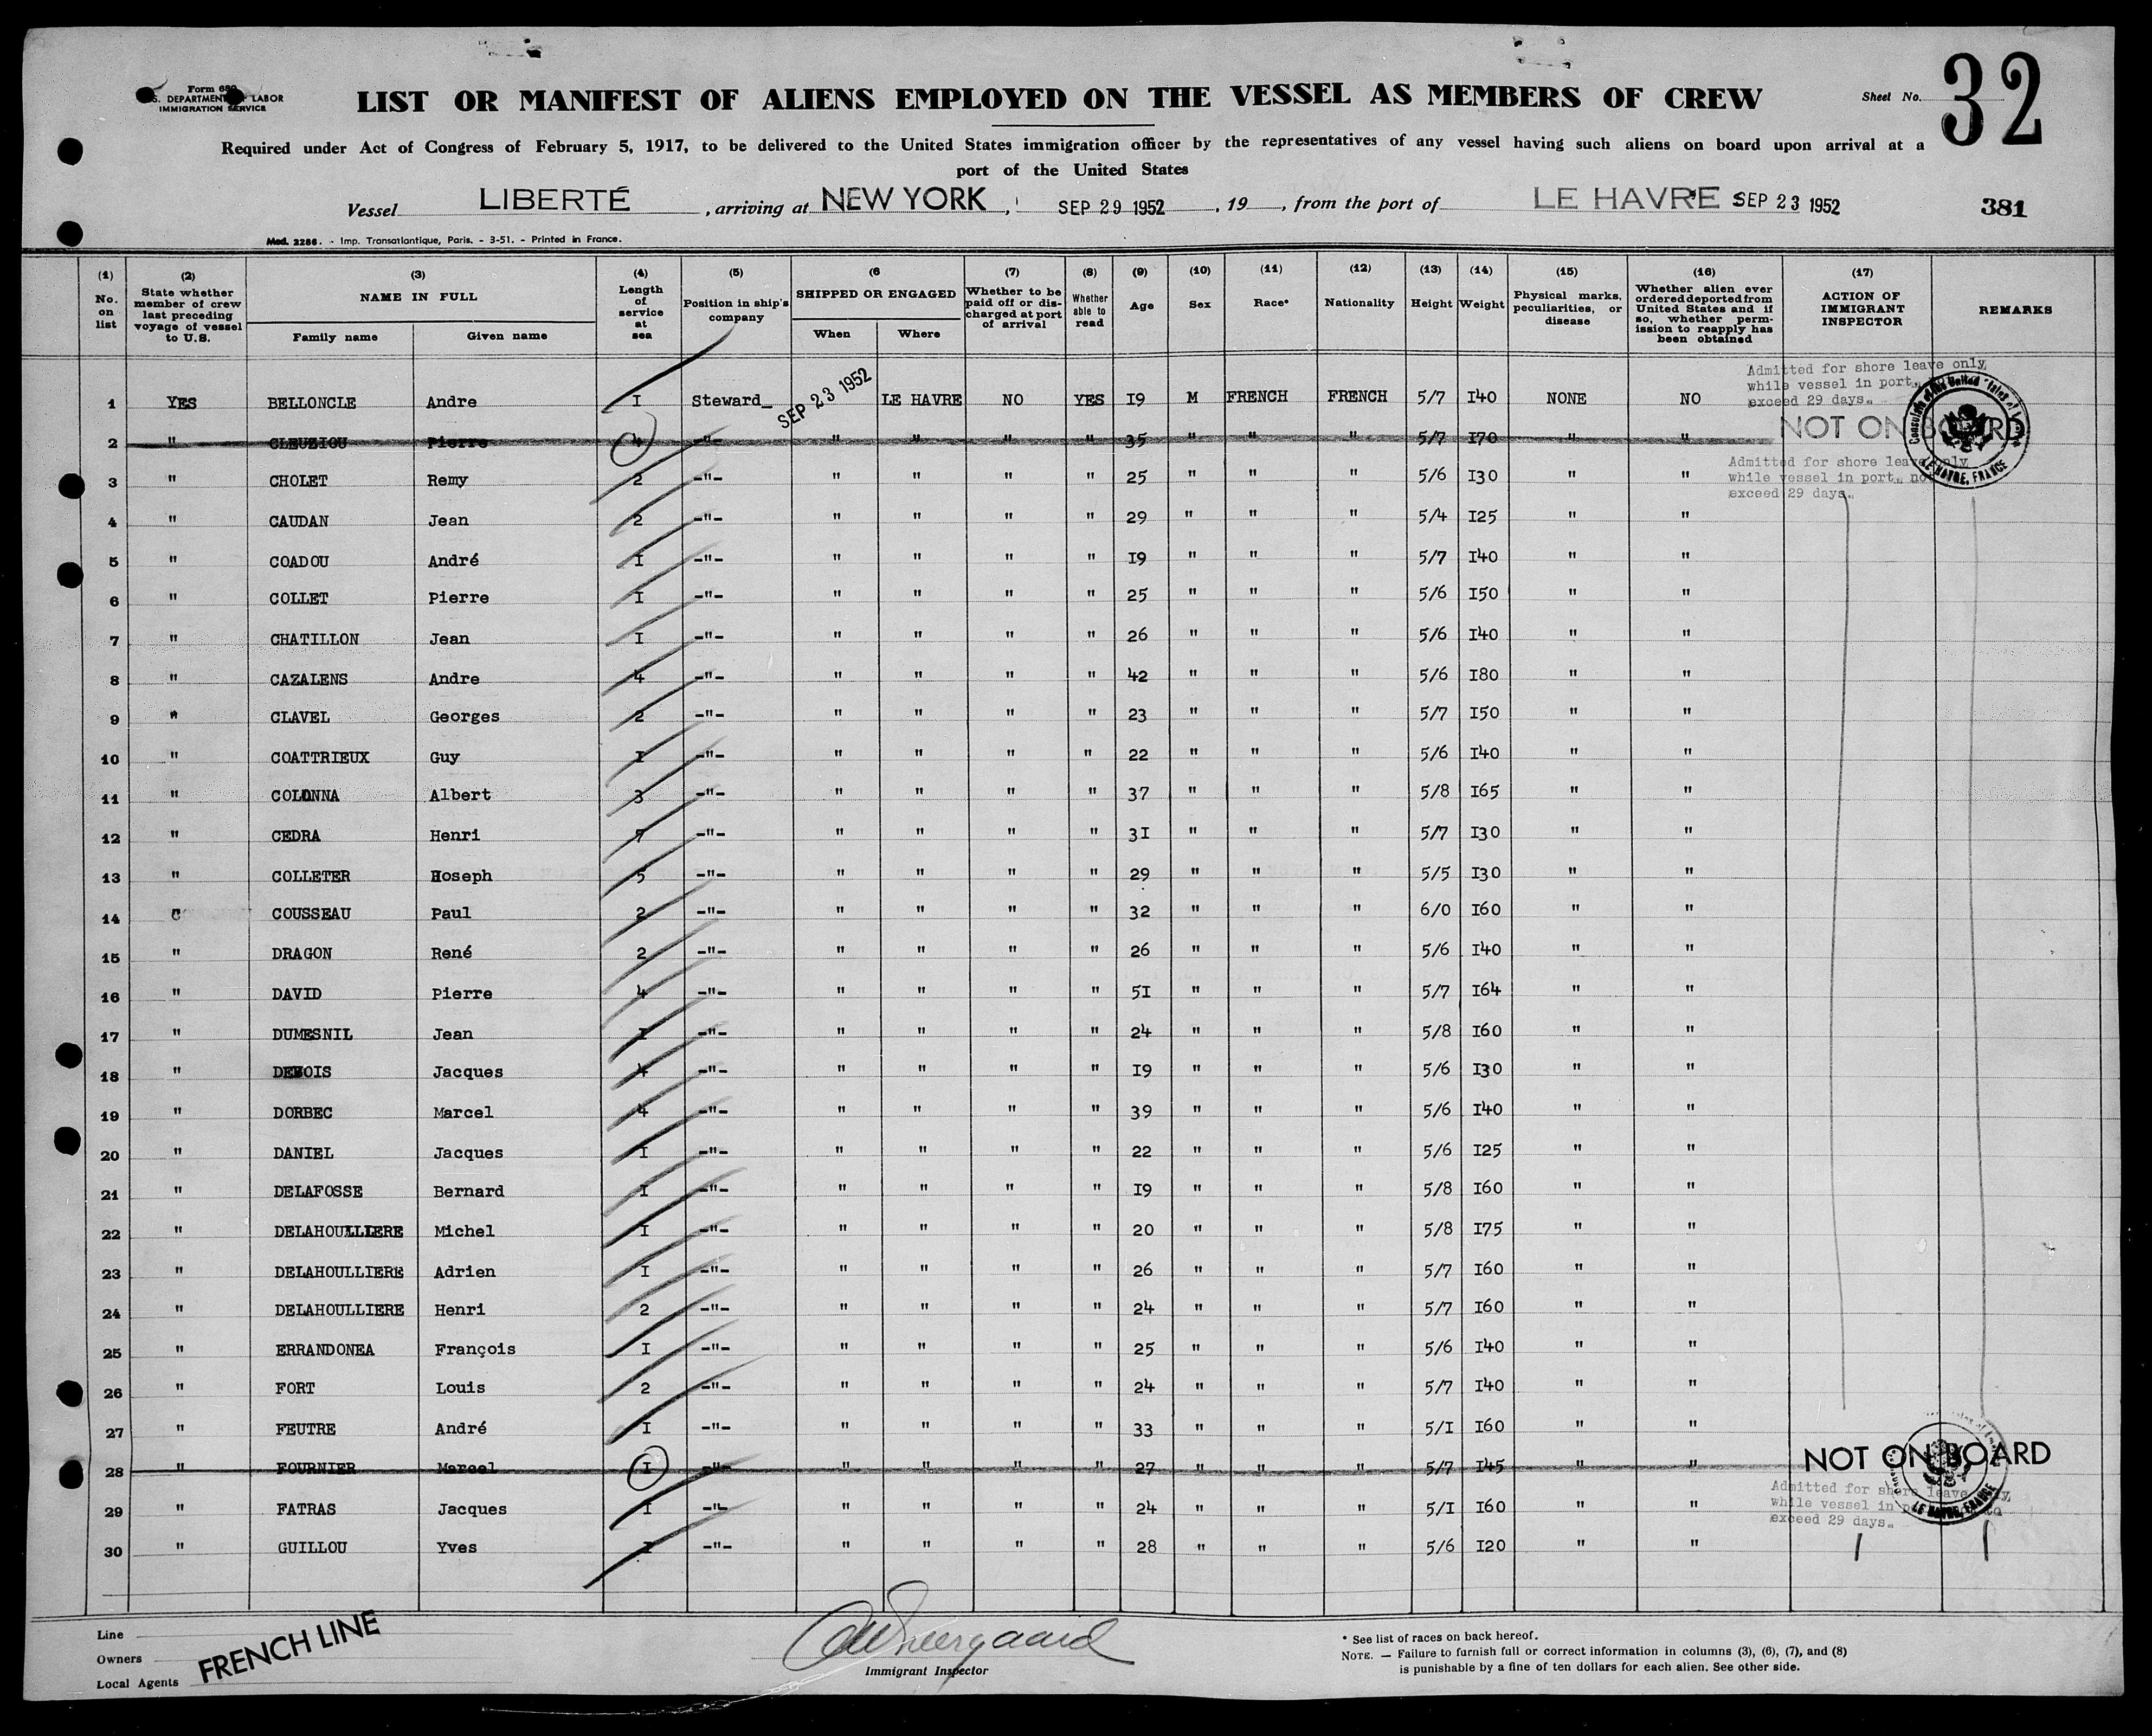 Form 680
U.S. DEPARTMENT OF LABOR
IMMIGRATION SERVICE
LIST OR MANIFEST OF ALIENS EMPLOYED ON THE VESSEL AS MEMBERS OF CREW
Sheet No. 32
Required under Act of Congress of February 5, 1917, to be delivered to the United States immigration officer by the representatives of any vessel having such aliens on board upon arrival at a
port of the United States
Vessel LIBERTÉ, arriving at NEW YORK, SEP 29 1952, 19 , from the port of LE HAVRE SEP 23 1952 381
Mod. 2286. - Imp. Transatlantique, Paris. - 3-51. - Printed in France.
(1) No. on list
(2) State whether member of crew last preceding voyage of vessel to U.S.
(3) NAME IN FULL Family name Given name
(4) Length of service at sea
(5) Position in ship's company
(6 SHIPPED OR ENGAGED When Where
(7) Whether to be paid off or discharged at port of arrival
(8) Whether able to read
(9) Age
(10) Sex
(11) Race*
(12) Nationality
(13) Height
(14) Weight
(15) Physical marks, peculiarities, or disease
(16) Whether alien ever ordered deported from United States and if so, whether permission to reapply has been obtained
(17) ACTION OF IMMIGRANT INSPECTOR
REMARKS
Admitted for shore leave only
while vessel in port,
exceed 29 days.
1 YES BELLONCLE Andre I Steward_ SEP 23 1952 LE HAVRE NO YES I9 M FRENCH FRENCH 5/7 I40 NONE NO
2 " CLEUZIOU Pierre 4 -"- " " " " 35 " " " 5/7 I70 " " NOT ON BOARD
Consulate of the United States of America
LE HAVRE, FRANCE
3 " CHOLET Remy 2 -"- " " " " 25 " " " 5/6 I30 " "
Admitted for shore leave only
while vessel in port, no
exceed 29 days.
4 " CAUDAN Jean 2 -"- " " " " 29 " " " 5/4 I25 " "
5 " COADOU André I -"- " " " " I9 " " " 5/7 I40 " "
6 " COLLET Pierre I -"- " " " " 25 " " " 5/6 I50 " "
7 " CHATILLON Jean I -"- " " " " 26 " " " 5/6 I40 " "
8 " CAZALENS Andre 4 -"- " " " " 42 " " " 5/6 I80 " "
9 " CLAVEL Georges 2 -"- " " " " 23 " " " 5/7 I50 " "
10 " COATTRIEUX Guy I -"- " " " " 22 " " " 5/6 I40 " "
11 " COLONNA Albert 3 -"- " " " " 37 " " " 5/8 I65 " "
12 " CEDRA Henri 7 -"- " " " " 3I " " " 5/7 I30 " "
13 " COLLETER Hoseph 5 -"- " " " " 29 " " " 5/5 I30 " "
14 COUSSEAU Paul 2 -"- " " " " 32 " " " 6/0 I60 " "
15 " DRAGON René 2 -"- " " " " 26 " " " 5/6 I40 " "
16 " DAVID Pierre 4 -"- " " " " 5I " " " 5/7 I64 " "
17 " DUMESNIL Jean I -"- " " " " 24 " " " 5/8 I60 " "
18 " Jacques 4 -"- " " " " I9 " " " 5/6 I30 " "
19 " DORBEC Marcel 4 -"- " " " " 39 " " " 5/6 I40 " "
20 " DANIEL Jacques I -"- " " " " 22 " " " 5/6 I25 " "
21 " DELAFOSSE Bernard I -"- " " " " I9 " " " 5/8 I60 " "
22 " DELAHOULLIERE Michel I -"- " " " " 20 " " " 5/8 I75 " "
23 " DELAHOULLIERE Adrien I -"- " " " " 26 " " " 5/7 I60 " "
24 " DELAHOULLIERE Henri 2 -"- " " " " 24 " " " 5/7 I60 " "
25 " ERRANDONEA François I -"- " " " " 25 " " " 5/6 I40 " "
26 " FORT Louis 2 -"- " " " " 24 " " " 5/7 I40 " "
27 " FEUTRE André I -"- " " " " 33 " " " 5/I I60 " "
28 " FOURNIER Marcel I -"- " " " " 27 " " " 5/7 I45 " " NOT ON BOARD
LE HAVRE, FRANCE
29 " FATRAS Jacques I -"- " " " " 24 " " " 5/I I60 " "
Admitted for shore leave only,
while vessel in port to
exceed 29 days.
30 " GUILLOU Yves I -"- " " " " 28 " " " 5/6 I20 " "
Line
Owners
Local Agents
FRENCH LINE
Immigrant Inspector
* See list of races on back hereof.
NOTE. — Failure to furnish full or correct information in columns (3), (6), (7), and (8)
is punishable by a fine of ten dollars for each alien. See other side.